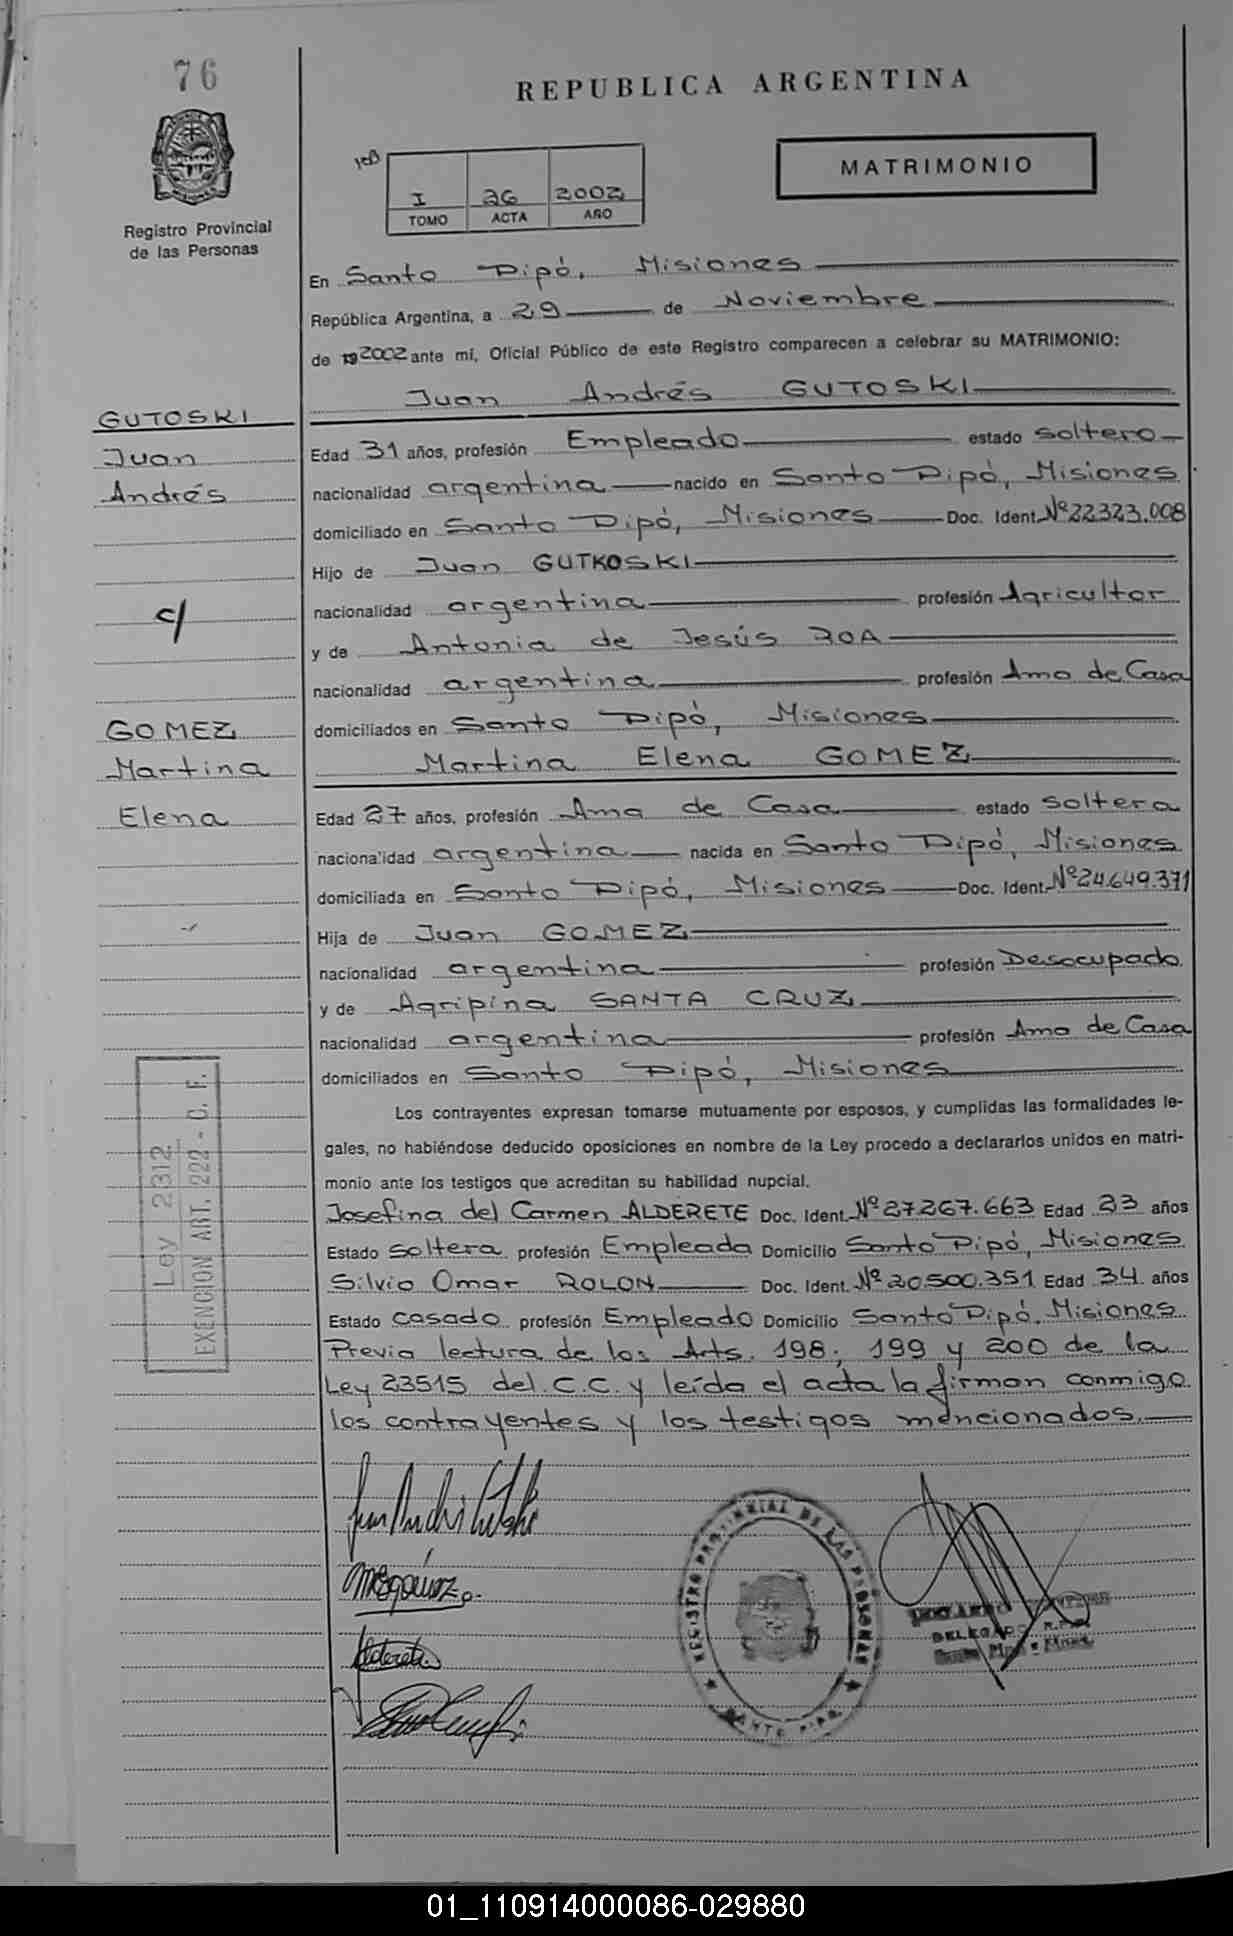 76
REPUBLICA ARGENTINA
MATRIMONIO
I 26 2002
TOMO ACTA AÑO
Registro Provincial
de las Personas
En Santo Pipó, Misiones
República Argentina, a 29 de Noviembre
de 192002 ante mí, Oficial Público de este Registro comparecen a celebrar su MATRIMONIO:
Juan Andrés GUTOSKI
GUTOSKI
Juan
Andrés
c/
GOMEZ
Martina
Elena
Edad 31 años, profesión Empleado estado soltero
nacionalidad argentina nacido en Santo Pipó, Misiones
domiciliado en Santo Pipó, Misiones Doc. Ident. Nº 22.323.008
Hijo de Juan GUTKOSKI
nacionalidad argentina profesión Agricultor
y de Antonia de Jesús ROA
nacionalidad argentina profesión Ama de Casa
domiciliados en Santo Pipó, Misiones
Martina Elena GOMEZ
Edad 27 años, profesión Ama de Casa estado soltera
nacionalidad argentina nacida en Santo Pipó, Misiones
domiciliada en Santo Pipó, Misiones Doc. Ident. Nº 24.649.371
Hija de Juan GOMEZ
nacionalidad argentina profesión Desocupado
y de Agripina SANTA CRUZ
nacionalidad argentina profesión Ama de Casa
domiciliados en Santo Pipó, Misiones
Los contrayentes expresan tomarse mutuamente por esposos, y cumplidas las formalidades le-
gales, no habiéndose deducido oposiciones en nombre de la Ley procedo a declararlos unidos en matri-
monio ante los testigos que acreditan su habilidad nupcial.
Josefina del Carmen ALDERETE Doc. Ident. Nº 27.267.663 Edad 23 años
Estado soltera profesión Empleada Domicilio Santo Pipó, Misiones
Silvio Omar ROLON Doc. Ident. Nº 20.500.351 Edad 34 años
Estado casado profesión Empleado Domicilio Santo Pipó, Misiones
Previa lectura de los Arts. 198, 199 y 200 de la
Ley 23515 del C.C. y leída el acta la firman conmigo
los contrayentes y los testigos mencionados.
Ley 2312
EXENCION ART. 222 - C. F.
Alderete
REGISTRO PROVINCIAL DE LAS PERSONAS
SANTO PIPO
DELEGADO R.P.P.
01_110914000086-029880